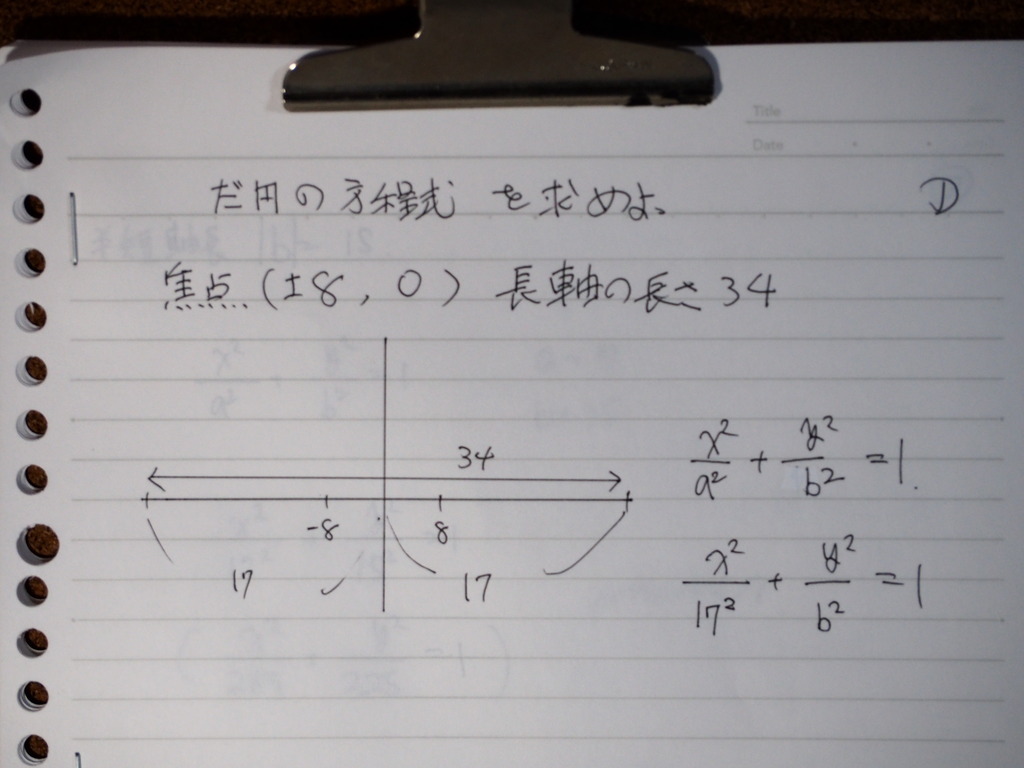 Title
Date
だ円の方程式 を求めよ。
焦点 (±8, 0) 長軸の長さ 34
34
-8 8
17 17
x²/a² + y²/b² = 1.
x²/17² + y²/b² = 1